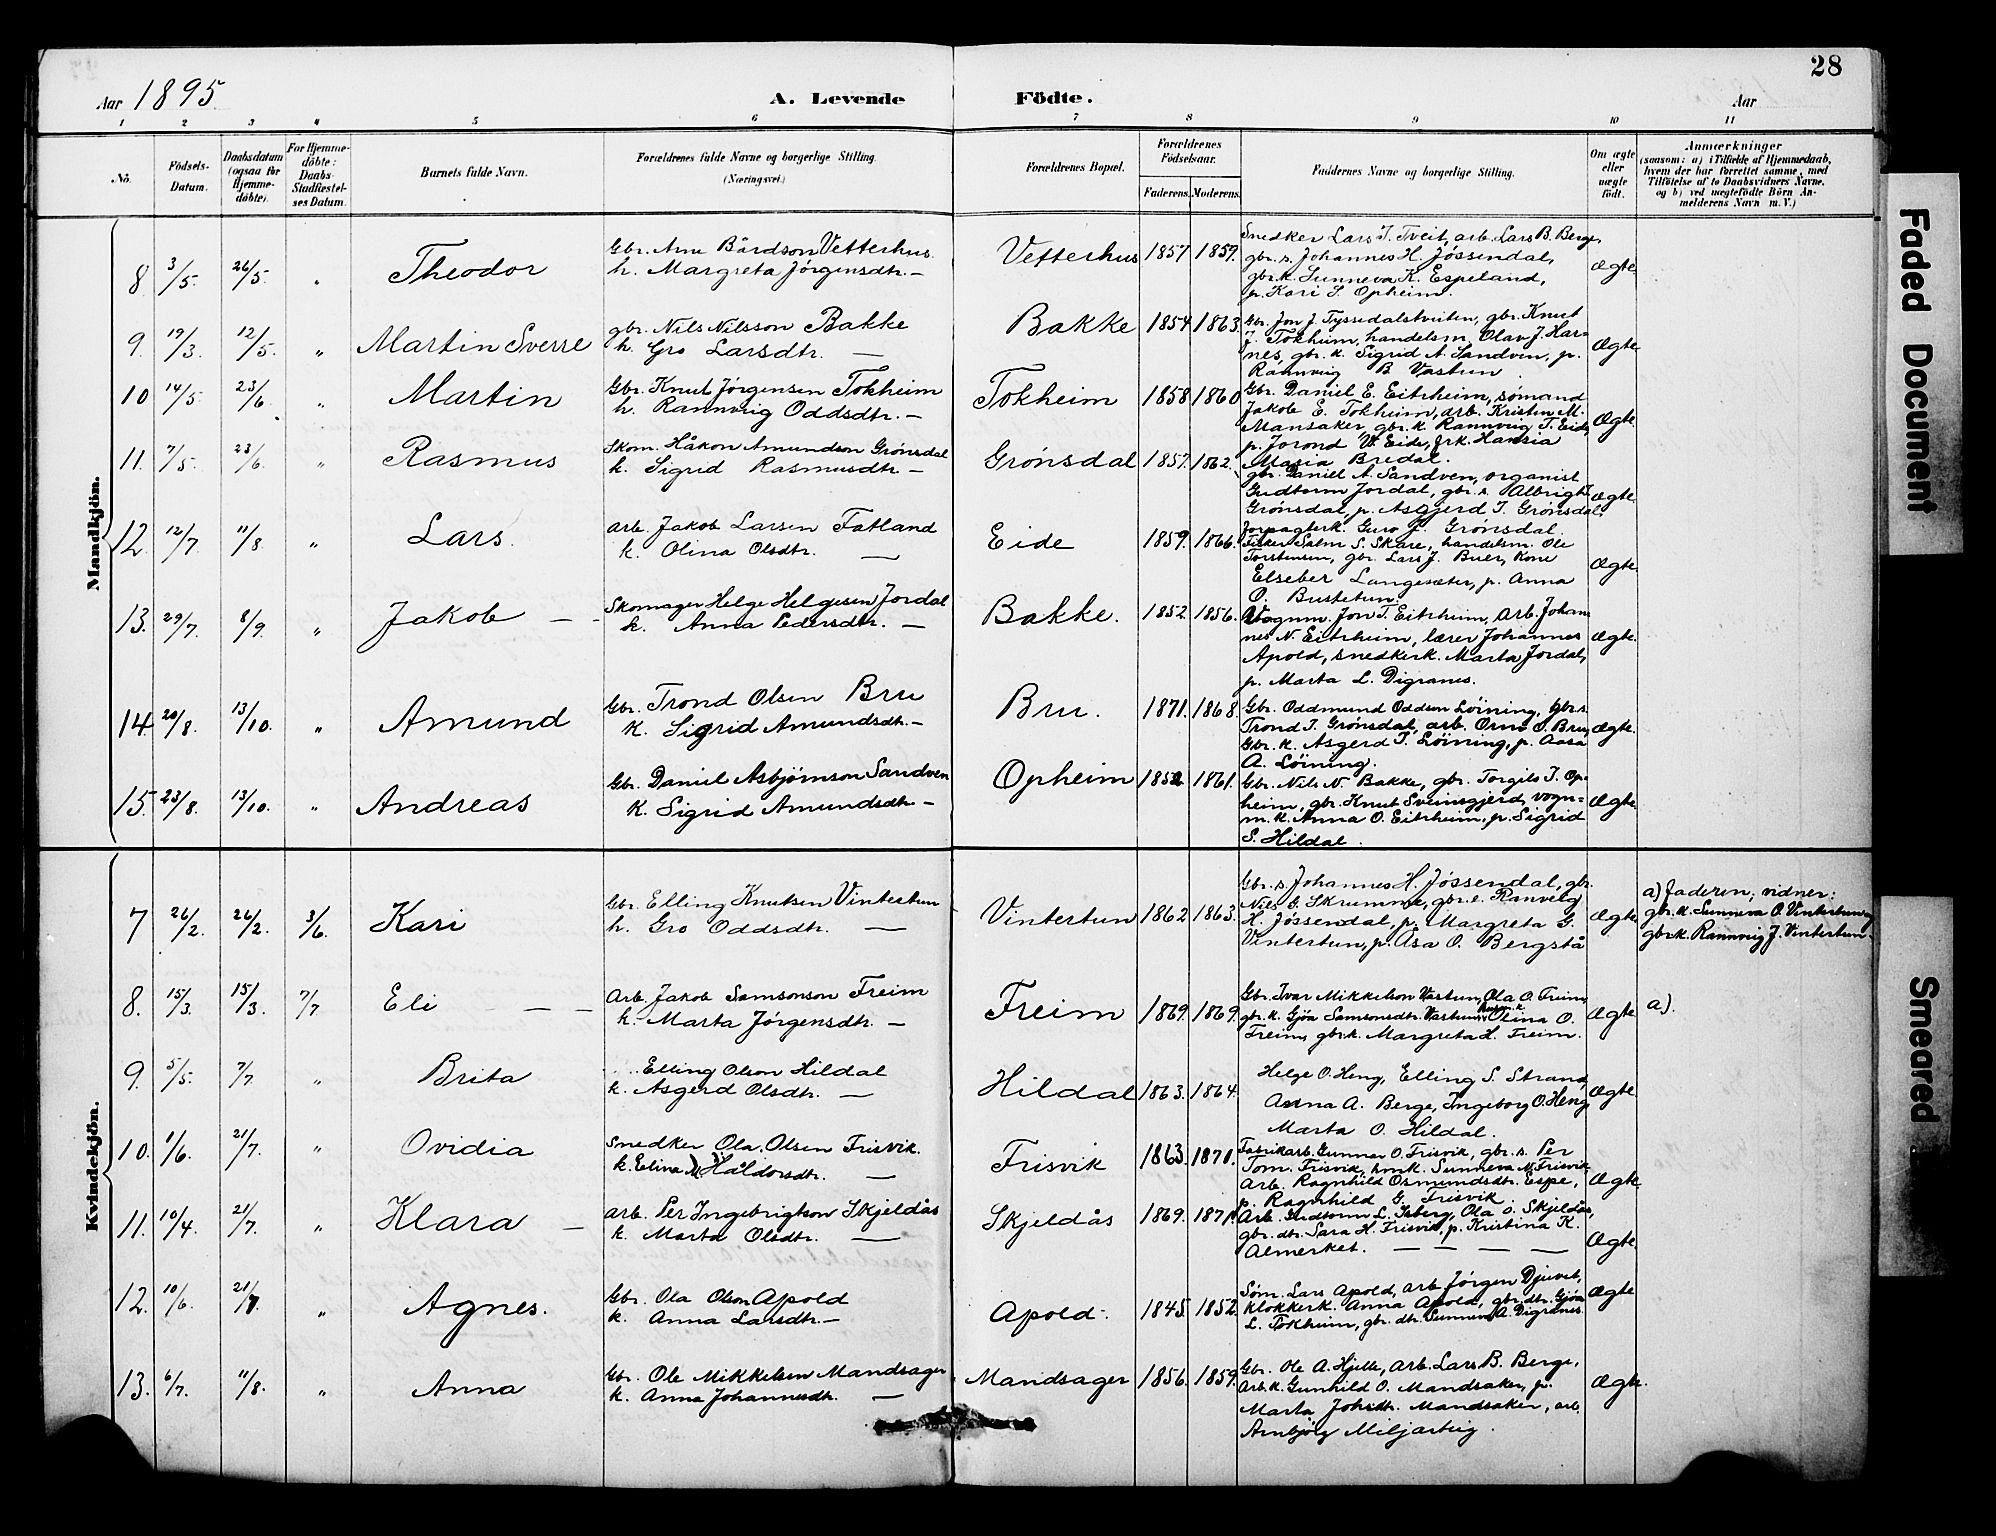 28
Aar 1895 A. Levende Födte. Aar
1 2 3 4 5 6 7 8 9 10 11
No. Födsels-Datum. Daabsdatum (ogsaa for Hjemme-döbte). For Hjemme-döbte: Daabs-Stadfæstel-ses Datum. Barnets fulde Navn. Forældrenes fulde Navne og borgerlige Stilling. (Næringsvei.) Forældrenes Bopæl. Forældrenes Födselsaar. Faderens. Moderens. Faddernes Navne og borgerlige Stilling. Om ægte eller uægte födt. Anmærkninger (saasom: a) i Tilfælde af Hjemmedaab, hvem der har forrettet samme, med Tilföielse af to Daabsvidners Navne, og b) ved uægtefödte Börn An-melderens Navn m. V.)
Mandkjön.
8 3/5. 26/5. " Theodor Gbr. Arne Bårdson Vetterhus. h. Margreta Jørgensdtr. — Vetterhus 1857 1859. Ægte
Snedker Lars T. Tveit, arb. Lars B. Berge,
gbr. s. Johannes H. Jøssendal,
gbr. k. Sunneva K. Espeland,
p. Kari S. Opheim.
9. 19/3. 12/5. " Martin Sverre gbr. Nils Nilsson Bakke h. Gro Larsdtr. — Bakke 1854 1863. Ægte
Gbr. Jon J. Tyssedalstveiten, gbr. Knut
J. Tokheim, handelsm. Olav J. Har-
nes, gbr. k. Sigrid A. Sandven, p.
Rannveig B Vastun
10 14/5 23/6. " Martin Gbr. Knut Jørgensen Tokheim h. Rannveig Oddsdtr. — Tokheim 1858 1860 Ægte
Gbr. Daniel E. Eitrheim, sømand
Jakob E. Tokheim, arb. Kristen M.
Mansaker, gbr. k. Rannveig T. Eide,
p. Jorond W. Eide, frk. Hansia
Maria Bredal.
11. 7/5. 23/6. " Rasmus Skom. Håkon Amundson Grønsdal k. Sigrid Rasmusdtr — Grønsdal 1857. 1862. Ægte
gbr. Daniel A. Sandven, organist
Gudtorm Jordal, gbr. s. Albrigt T.
Grønsdal, p. Asgjerd T. Grønsdal,
forpagterk. Guro J. Grønsdal
12. 12/7. 11/8. " Lars. arb. Jakob Larsen Fatland k. Olina Olsdtr. — Eide 1859. 1866. Ægte
Fisker Salm S. Skare, handelsm. Ole
Torstensen, gbr. Lars J. Buer, kone
Elseber Langesæter, p. Anna
O. Bustetun.
13. 29/7. 8/9. " Jakob — - Skomager Helge Helgesen Jordal k. Anna Pedersdtr. — Bakke. 1852 1856. Ægte.
Vognm. Jon T. Eitrheim, arb. Johan-
nes N. Eitrheim, lærer Johannes
Apold, snedkerk. Marta Jordal,
p. Marta L. Digranes.
14 20/8. 13/10. " Amund Gbr. Trond Olsen Bru k. Sigrid Amundsdtr. — Bru. 1871. 1868. Ægte.
Gbr. Oddmund Oddsen Løining, gbr. s.
Trond T. Grønsdal, arb. Orm O. Bru,
Gbr. k. Asgerd T. Løining, p. Aasa
A. Løining.
15. 23/8. 13/10. " Andreas Gbr. Daniel Asbjørnson Sandven k. Sigrid Amundsdtr — Opheim 1852 1861. Ægte.
Gbr. Nils N. Bakke, gbr. Torgils T. Op-
heim, gbr. Knut Sveinsgjerd, vogn-
m. k. Anna O. Eitrheim, p. Sigrid
S. Hildal.
Kvindekjön.
7 26/2. 26/2. 3/6. Kari Gbr. Elling Knutsen Vintertun h. Gro Oddsdtr. — Vintertun 1862 1863. Ægte
Gbr. s. Johannes H. Jøssendal, gbr.
Nils G. Skrumme, gbr. e. Ranveig
H. Jøssendal, p. Margreta G.
Vintertun, p. Asa O. Bergstå
a) faderen; vidner:
gbr. k. Sunneva O. Vintertun og
gbr. k. Rannveig J. Vintertun.
8. 15/3. 15/3. 7/7 Eli — — Arb. Jakob Samsonson Freim k. Marta Jørgensdtr. — Freim 1869. 1869. Ægte a).
Gbr. Ivar Mikkelson Vastun, Ola O. Freim,
gbr. k. Gjøa Samsonsdtr. Vastun, husm. k. Olina O.
Freim, gbr. k. Margreta H. Freim.
9. 5/5. 7/7. " Brita Elling Olson Hildal k. Asgerd Olsdtr. — Hildal 1863. 1864. Ægte
Helge O. Heng, Elling S. Strand,
Anna A. Berge, Ingeborg O. Heng
Marta O. Hildal.
10. 1/6. 21/7. " Ovidia Snedker Ola Olsen Frisvik. k. Elina M. Håldorsdtr. — Frisvik 1863. 1870. Ægte
Fabrikarb. Gunnar O. Frisvik, gbr. s. Per
Tom. Frisvik, hmk. Sunneva N. Frisvik,
Arb. Ragnhild Osmundsdtr. Espe,
p. Ragnhild G. Frisvik.
11. 10/4. 21/7. " Klara — arb. Per Ingebrigtson Skjeldås k. Marta Olsdtr. — Skjeldås 1869. 1871. Ægte.
Arb. Gudtorm L. Isberg, Ola O. Skjeldås,
gbr. dtr. Sara H. Frisvik, p. Kristina K.
Almerket. — — — —
12. 10/6. 21/7. " Agnes. Gbr. Ola Olson Apold k. Anna Larsdtr. — Apold. 1845. 1852. Ægte
Søm. Lars Apold, arb. Jørgen Djuvet,
klokkerk. Anna Apold, gbr. dtr. Gjøa
L. Tokheim, gbr. dtr. Sunneva A. Digranes.
13. 6/7. 11/8. " Anna Gbr. Ole Mikkelsen Mandsager k. Anna Johannesdtr. — Mandsager 1856. 1859. Ægte.
Gbr. Ole A. Hjelle, arb. Lars B. Berge,
Arb. k. Gunhild O. Mandsaker, p.
Marta Johsdtr. Mandsaker, arb.
Arnbjølg Miljarteig.
Faded Document
Smeared